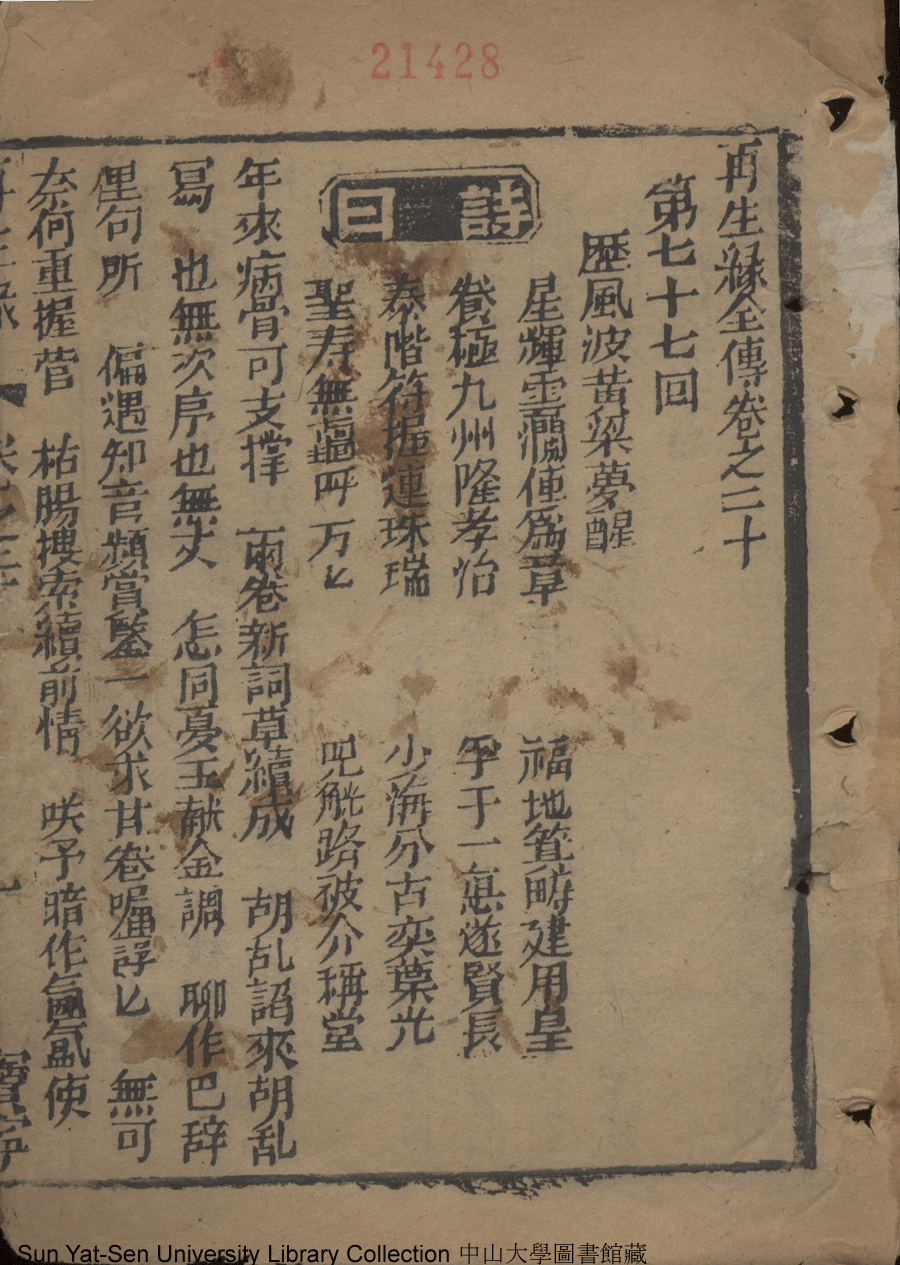 21428
再生縁全傳卷之二十
第七十七回
歷風波黄梁夢醒
詩曰
星輝雲爛倬爲章 福地箕疇建用皇
養極九州隆孝治 孚于一惠遂賢長
泰階符握連珠瑞 少海分古奕葉光
聖寿無疆呼万匕 兕觥躋彼介稱堂
年來病骨可支撑 兩卷新詞草續成 胡乱謅來胡乱
冩 也無次序也無文 怎同憂玉献金調 聊作巴辞
俚句所 偏遇知音頻賞鑒 欲求甘卷嘱諄匕 無可
奈何重握管 枯腸搜索續前情 咲予暗作氤氲使
Sun Yat-Sen University Library Collection 中山大學圖書館藏